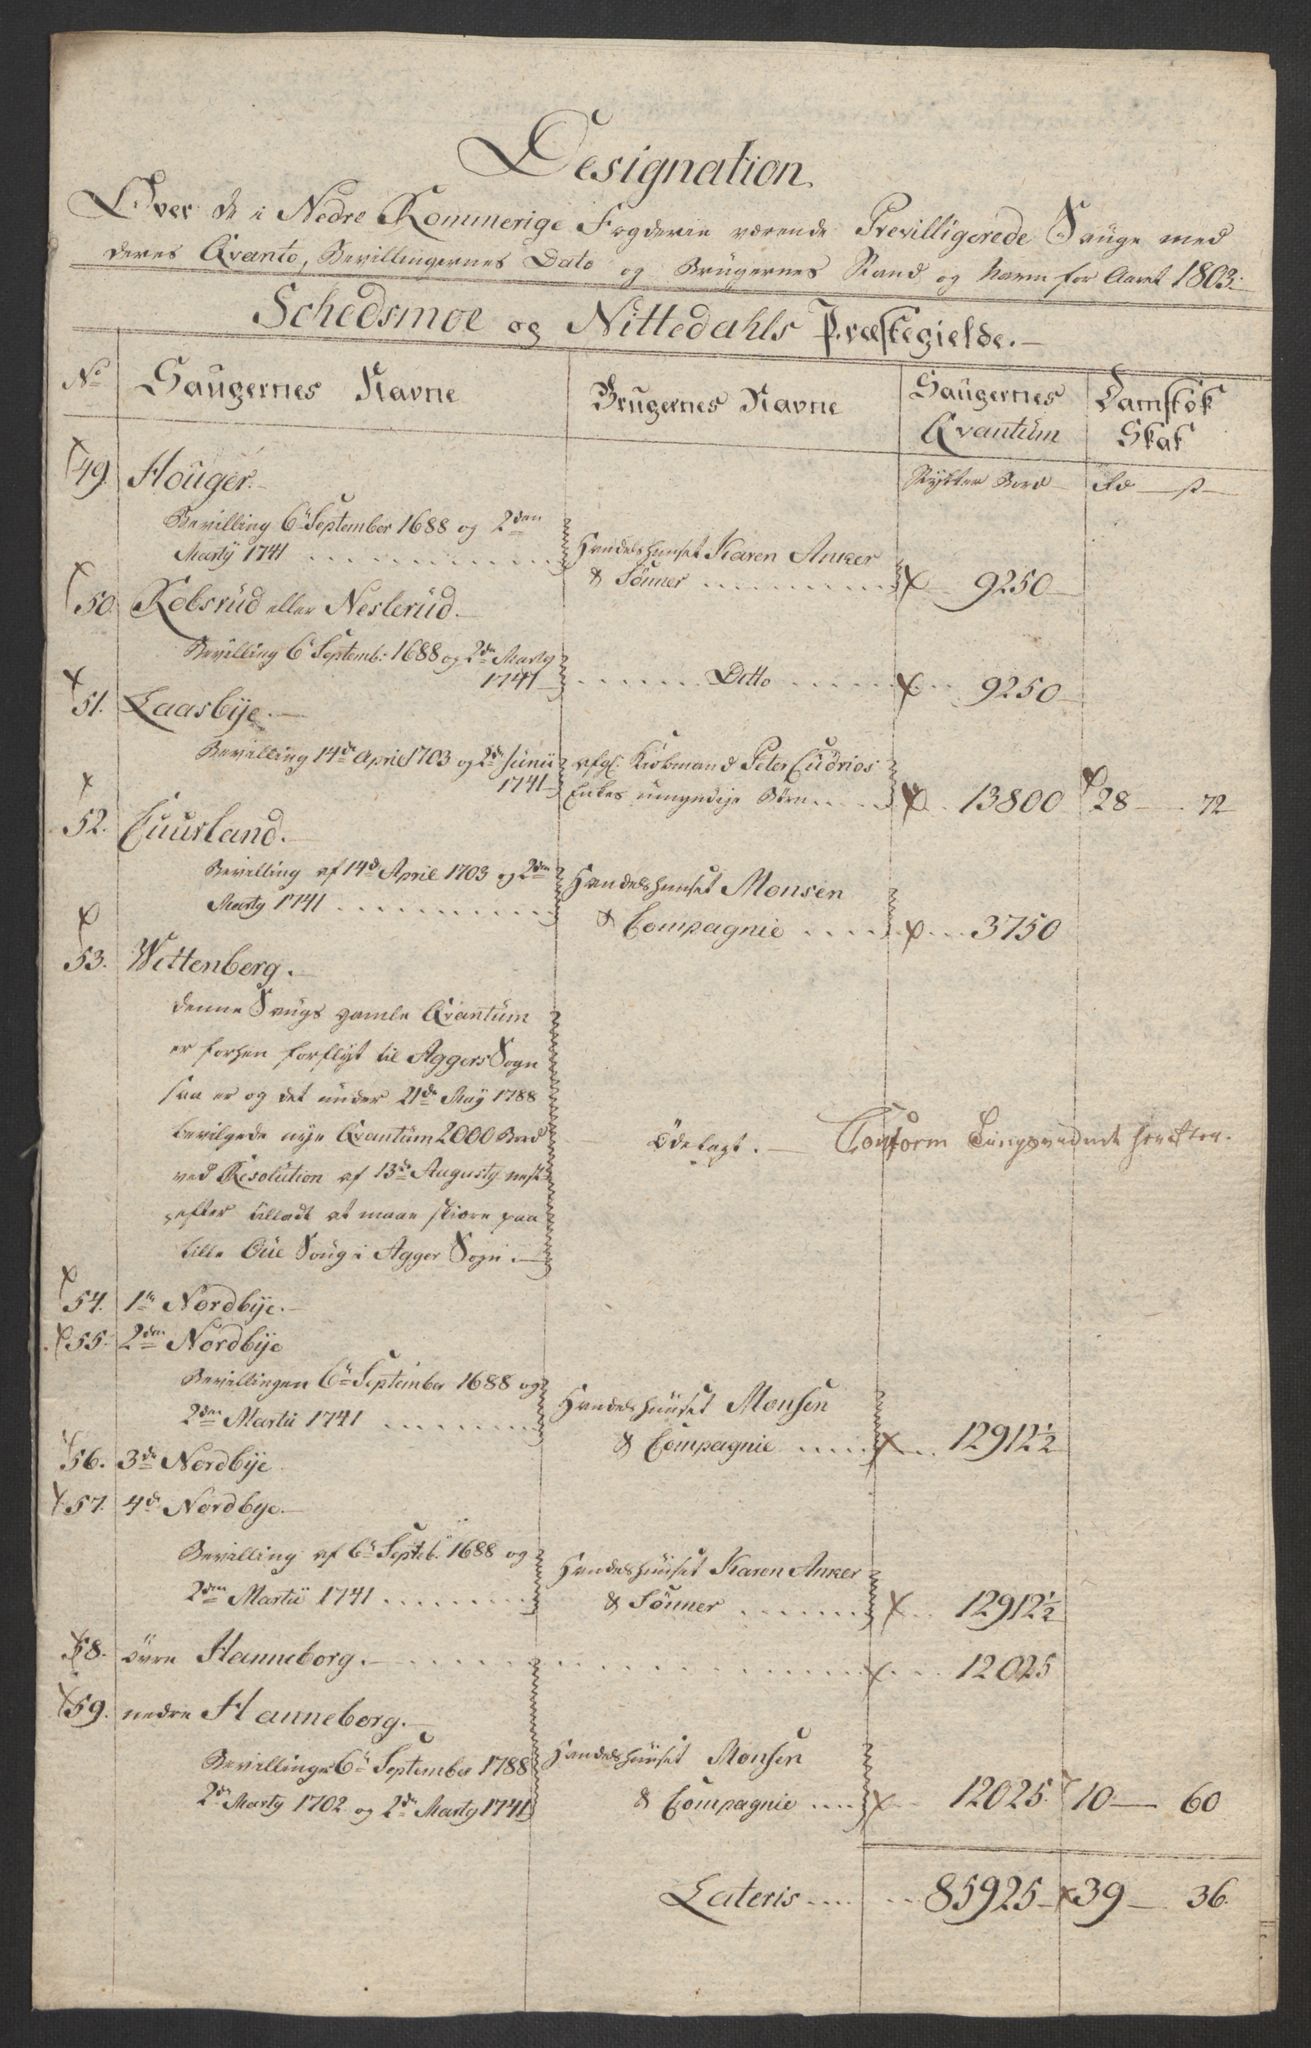 Designation
Over de i Nedre Rommerige Fogderie værende Previlligerede Sauge med
deres Qvanto, Bevillingernes Dato og Brugernes Stand og Navn for Aaret 1803.
Schedsmoe og Nittedahls Præstegielde.
No Saugernes Navne Brugernes Navne Saugernes Damstok
Qvantum Skat
Stykker Bord Rd s
49. Houger.
Bevilling 6te September 1688 og 2den
Marty 1741 Handelshuuset Karen Anker
& Sönner 9250
50. Robsrud eller Neslerud.
Bevilling 6te Septemb: 1688 og 2den Marty
1741 Ditto 9250
51. Laasbije.
Bevilling 14de April 1703 og 2de Junii afg. Kiöbmand Peter Cudrios
1741 Enkes umyndige Börn 13800 28 72
52. Cuurland.
Bevilling af 14de April 1703 og 2den Handelshuuset Monsen
Marty 1741 & Compagnie 3750
53. Wittenberg.
denne Saugs gamle Qvantum
er forhen forflyt til Aggers Sogn
saa er og det under 21de May 1788
bevilgede nye Qvantum 2000 Bord
ved Resolution af 13de Augusty nest
efter tilladt at maae skiære paa
lille Öue Saug i Agger Sogn.
Ödelagt. Conform
54. 1te Nordbije.
55. 2den Nordbije
Bevillingen 6te September 1688 og Handelshuuset Monsen
2den Martii 1741 & Compagnie 12912½
56. 3de Nordbije
57. 4de Nordbye.
Bevilling af 6te Septeb. 1688 og Handelshuuset Karen Anker
2den Martii 1741 & Sönner 12912½
58. övre Hanneborg. 12025
59. nedre Hanneborg.
Bevillinger 6te September 1788 Handelshuuset Monsen
2de Marty 1702 og 2de Marty 1741 & Compagnie 12025 10 60
Lateris 85925 39 36.